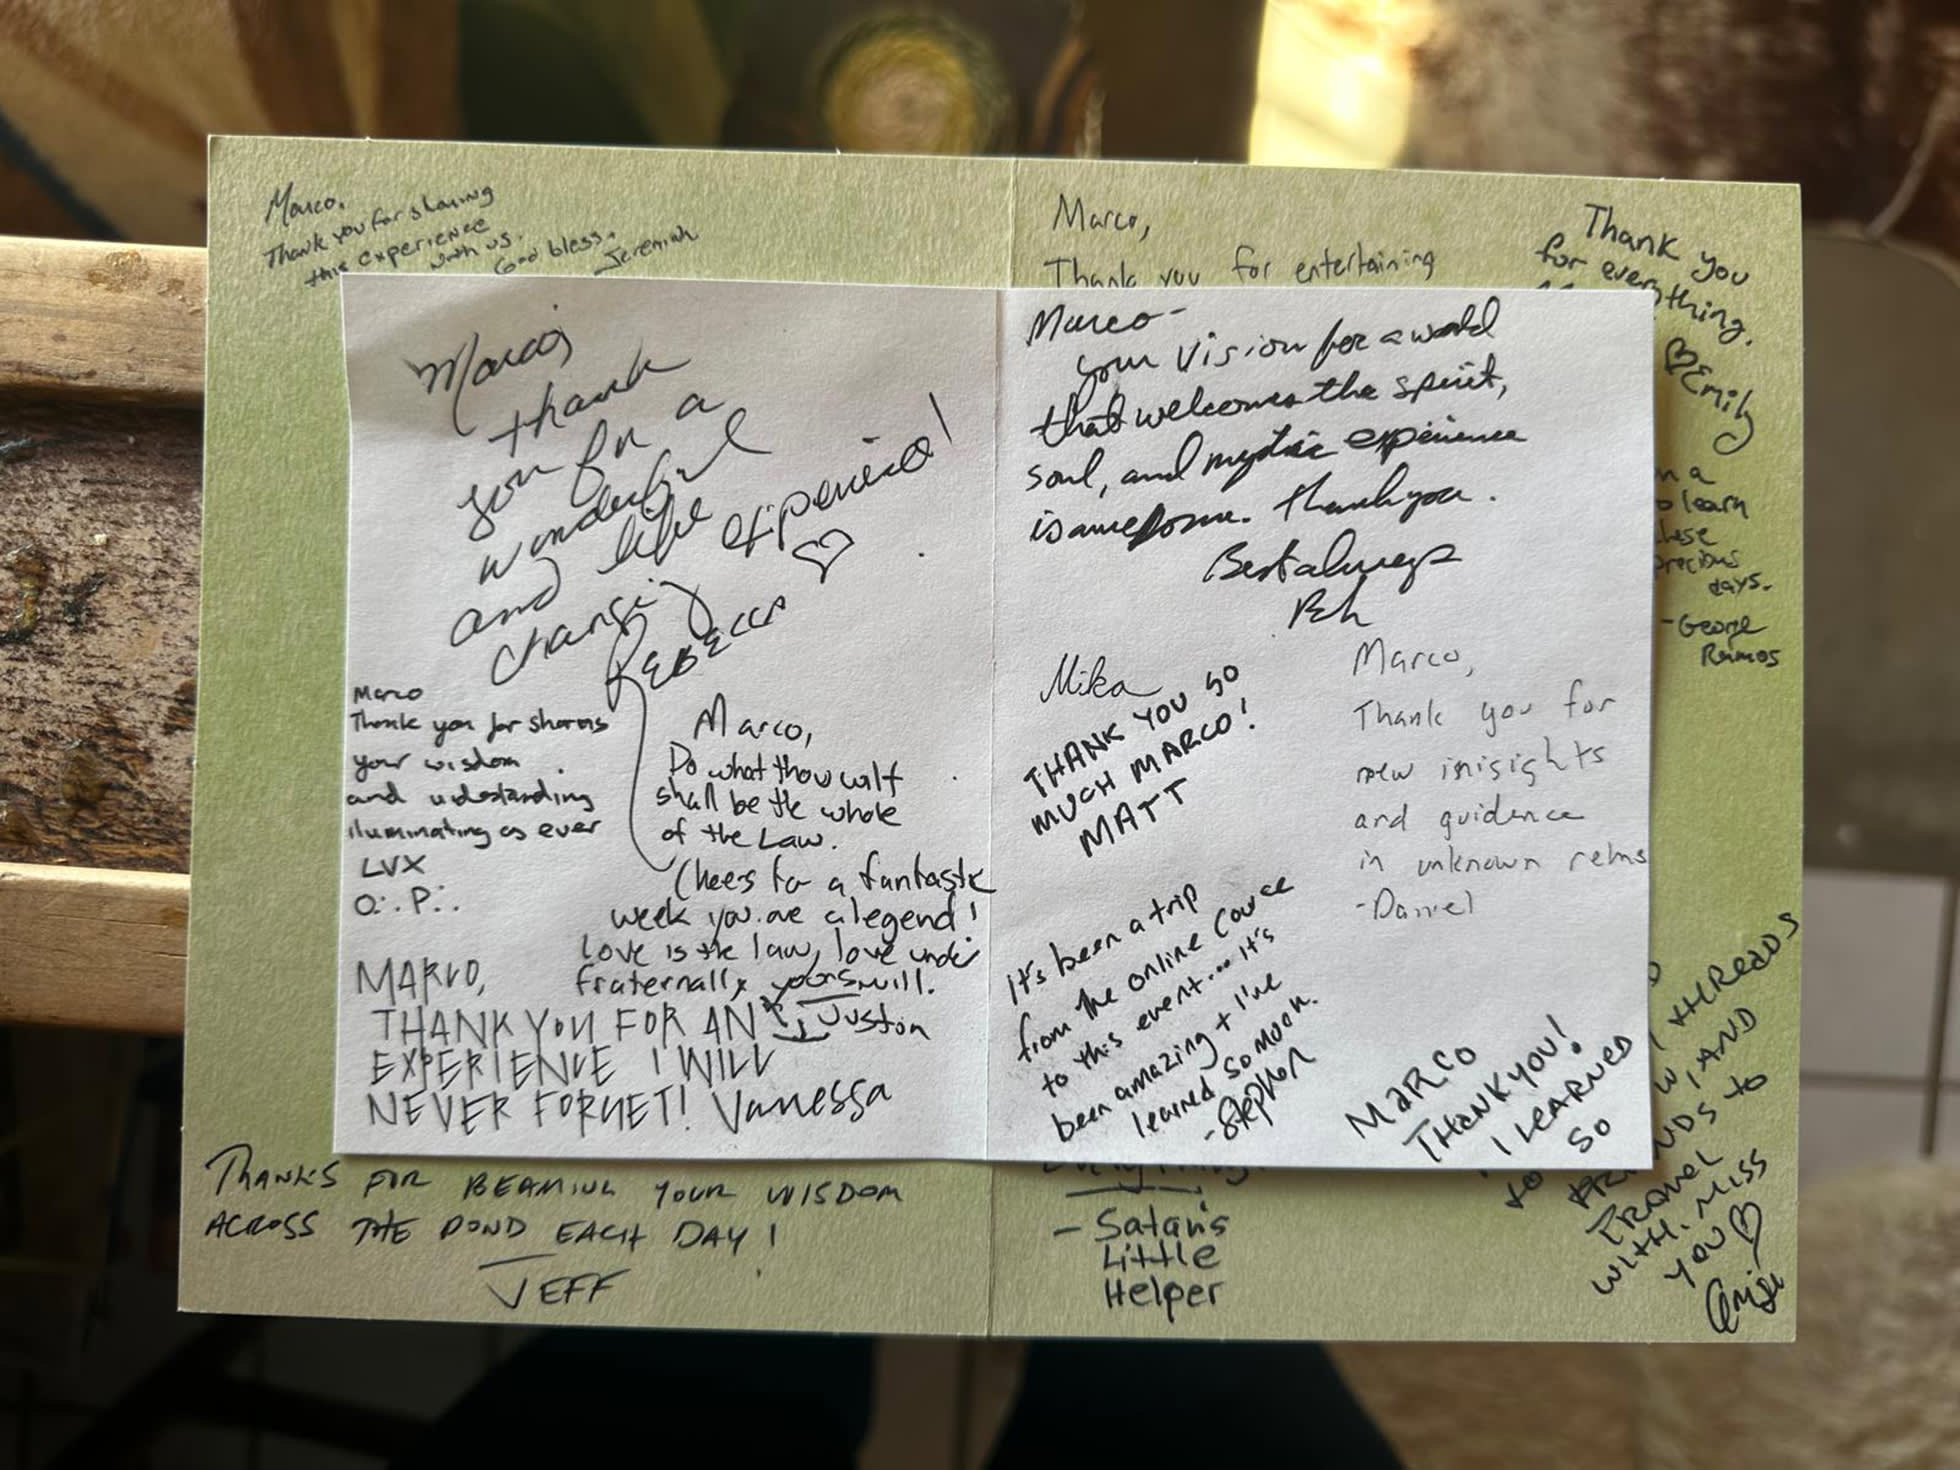 Marco,
Thank you for sharing
this experience
with us.
God bless.
Jeremiah
Marco,
Thank you for entertaining
Thank you
for everything.
♡Emily
Marco,
thank
you for a
wonderful
and life
changing experience!
♡
REBECCA
Marco
Thank you for sharing
your wisdom
and
illuminating as ever
LVX
O∴P∴
Marco,
Do what thou wilt
shall be the whole
of the Law.
Cheers to a fantastic
week you are a legend!
Love is the law, love under
will.
fraternally yours
Juston
MARCO,
THANK YOU FOR AN
EXPERIENCE I WILL
NEVER FORGET! Vanessa
Marco-
your vision for a world
that welcomes the spirit,
soul, and mystic experience
is awesome. Thank you.
Best always
Mika
THANK YOU SO
MUCH MARCO!
MATT
Marco,
Thank you for
new inisights
and guidence
in unknown relms
-Daniel
it's been a trip
from the online
to this event... it's
been amazing + I've
learned so much.
-Stephen
MARCO
THANK YOU!
I LEARNED
SO
n a
o learn
hese
precious
days.
-George
Ramos
THREADS
AND
to
TRAVEL
WITH. MISS
YOU ♡
THANKS FOR BEAMING YOUR WISDOM
ACROSS THE POND EACH DAY!
JEFF
- Satan's
Little
Helper